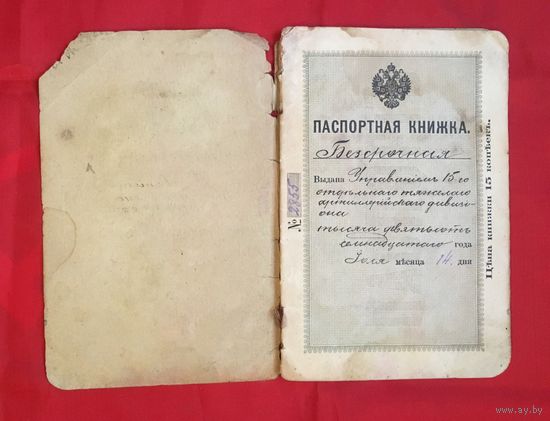 ПАСПОРТНАЯ КНИЖКА.
Безсрочная
Выдана Управленіемъ 15-го
отдѣльнаго тяжелаго
артиллерійскаго дивизі-
она
тысяча девятьсотъ
семнадцатаго года
Іюля мѣсяца 14 дня
№ 2865
Цѣна книжки 15 копѣекъ.
www.ay.by